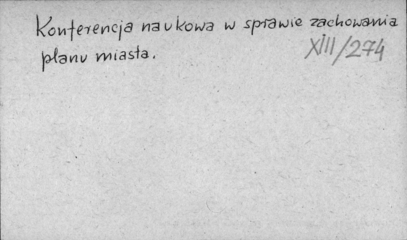 Konferencja naukowa w sprawie zachowania
planu miasta.
XIII/274